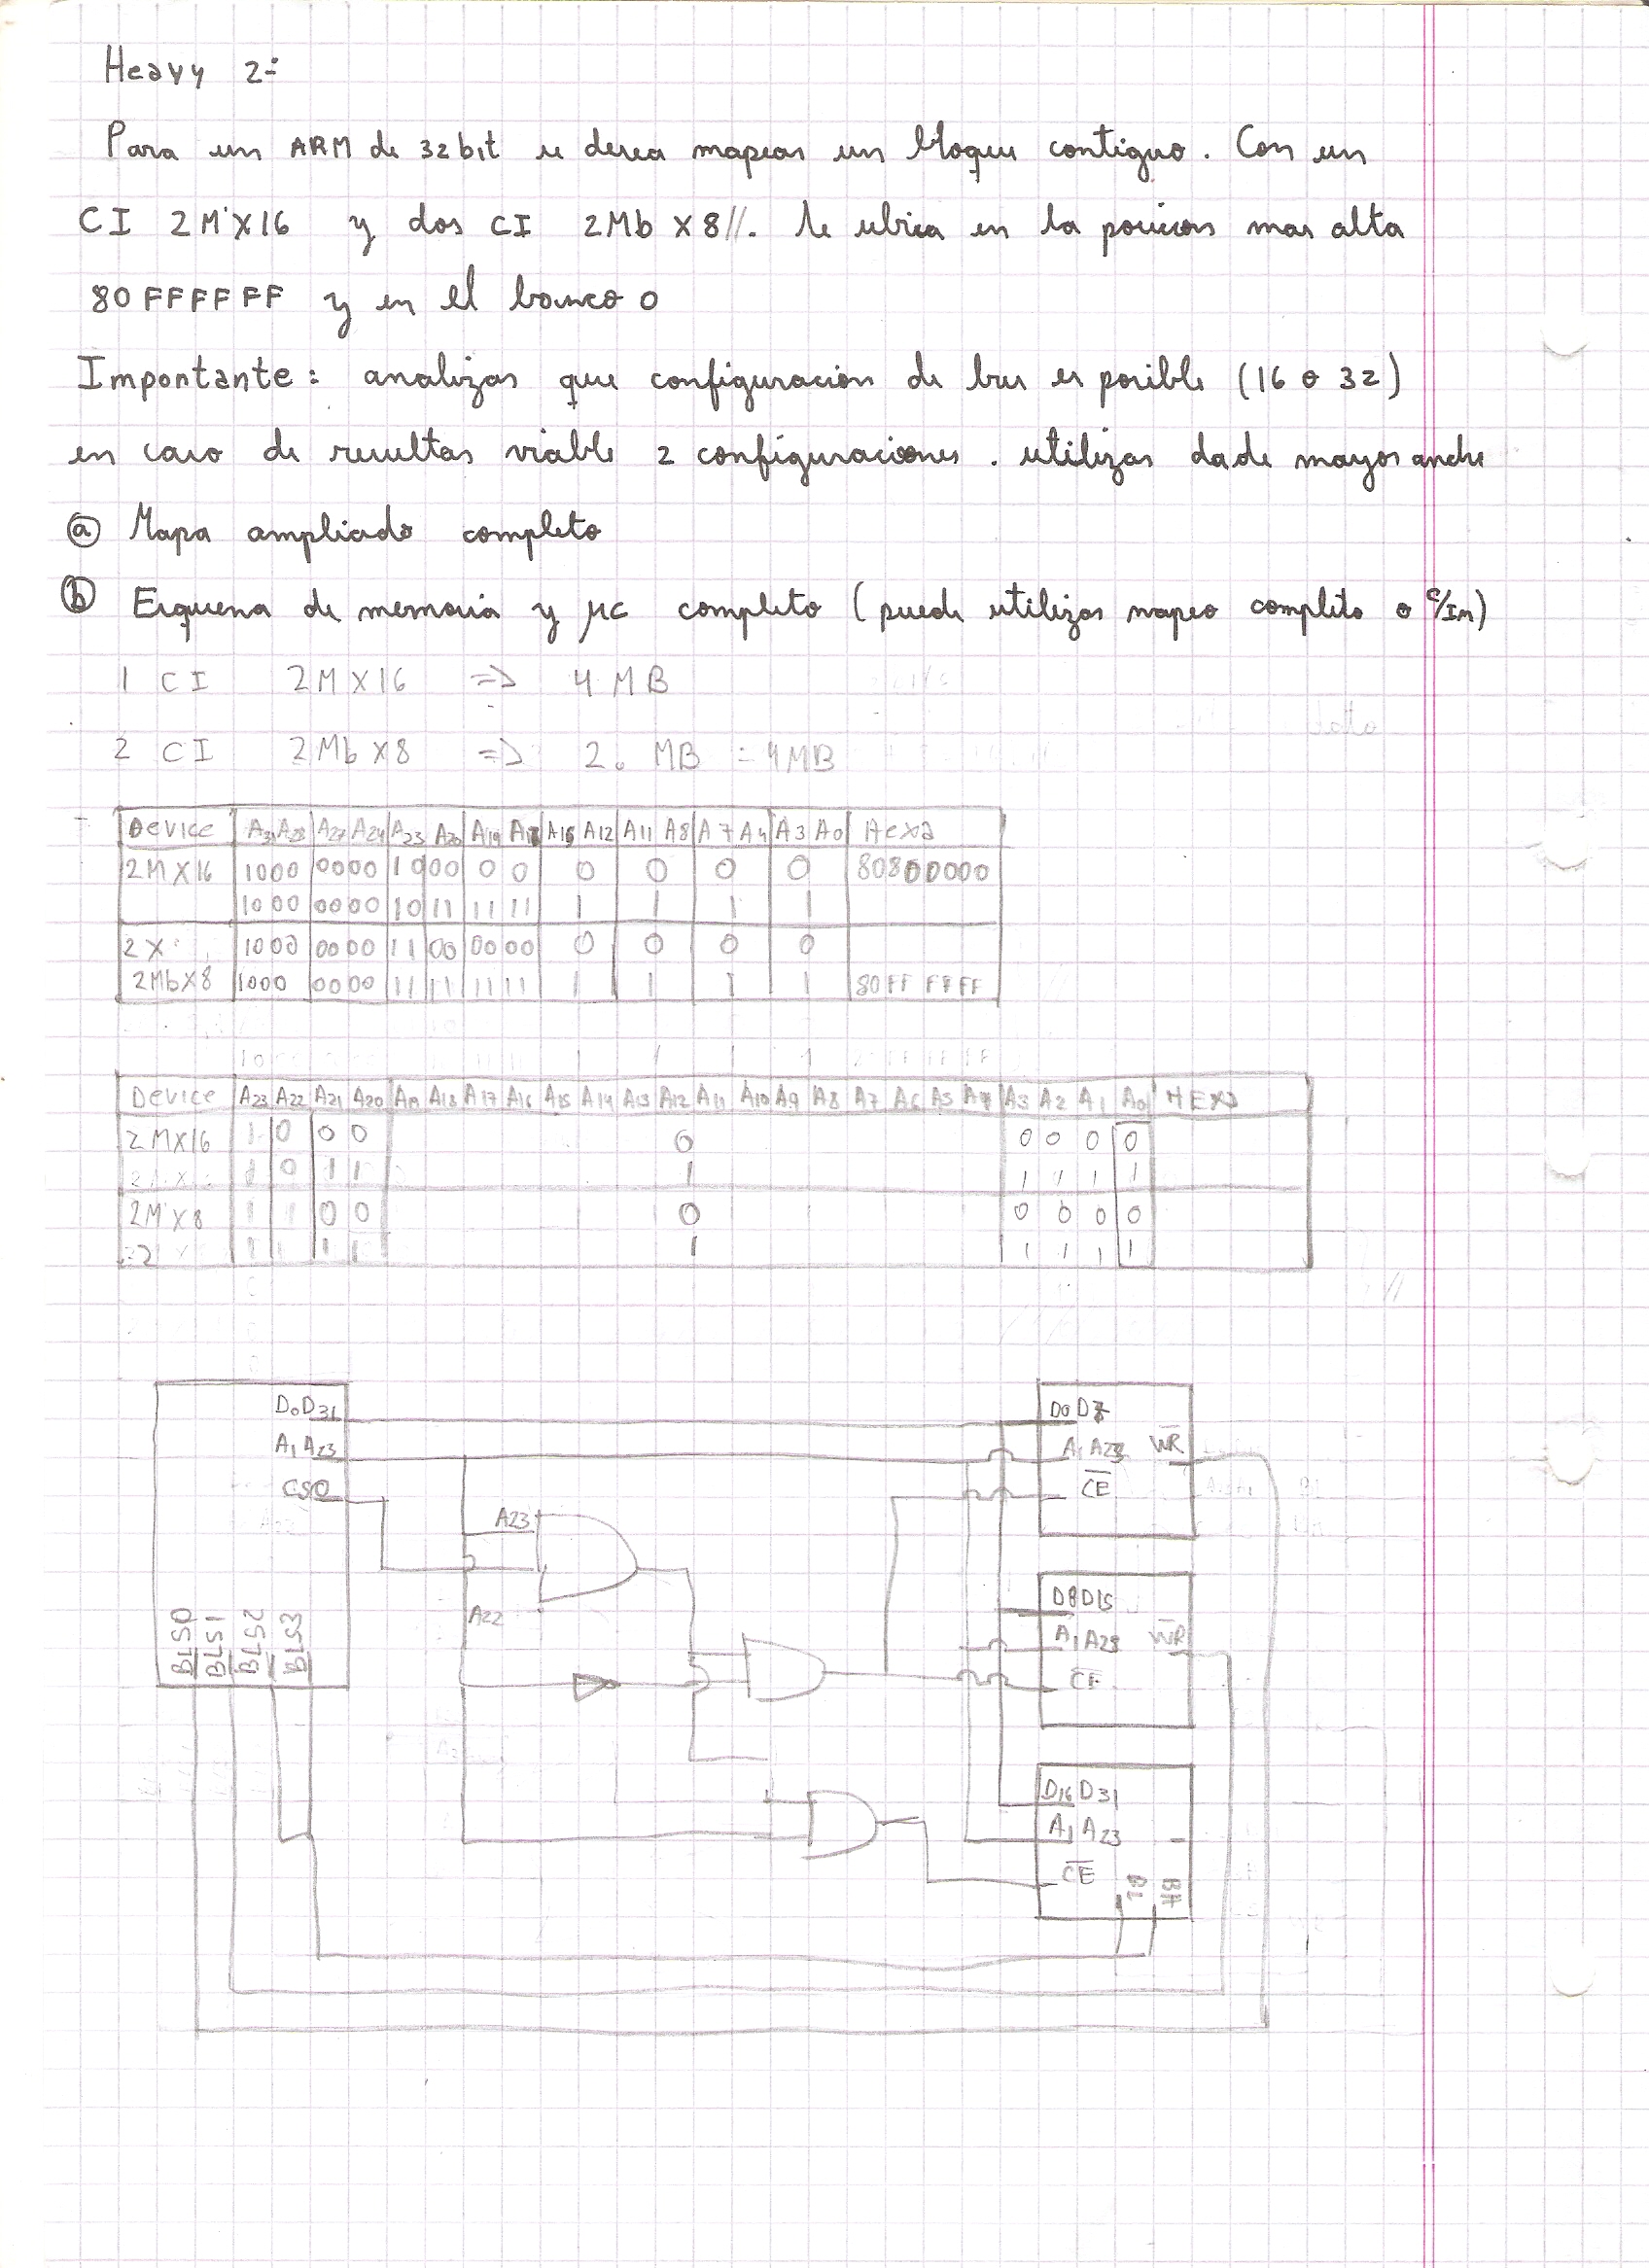 Heavy 2:
Para un ARM de 32 bit se desea mapear un bloque contiguo. Con un
CI 2M X16 y dos CI 2Mb X 8//. Se ubica en la posicion mas alta
80FFFFFF y en el banco 0
Importante: analizar que configuracion de bus es posible (16 o 32)
en caso de resultar viable 2 configuraciones. utilizar la de mayor ancho
(a) Mapa ampliado completo
(b) Esquena de memoria y μC completo (puede utilizar mapeo completo o c/Im)
1 CI 2M X16 => 4 MB
2 CI 2Mb X8 => 2. MB = 4MB
Device A31 A28 A27 A24 A23 A20 A19 A16 A15 A12 A11 A8 A7 A4 A3 A0 Hexa
2M X16 1000 0000 1000 0 0 0 0 0 0 80800000
1000 0000 1011 1111 1 1 1 1
2X 1000 0000 1100 0000 0 0 0 0
2MbX8 1000 0000 1111 1111 1 1 1 1 80FF FFFF
Device A23 A22 A21 A20 A19 A18 A17 A16 A15 A14 A13 A12 A11 A10 A9 A8 A7 A6 A5 A4 A3 A2 A1 A0 HEXa
2MX16 1 0 0 0 0 0 0 0 0
1 0 1 1 1 1 1 1 1
2M X8 1 1 0 0 0 0 0 0 0
1 1 1 1 1 1 1 1 1
D0D31
A1 A23
CS0
BLS0
BLS1
BLS2
BLS3
A23
A22
D0 D7
A1 A23 WR
CE
D8D15
A1 A23 WR
CE
D16 D31
A1 A23
CE
BL
BH